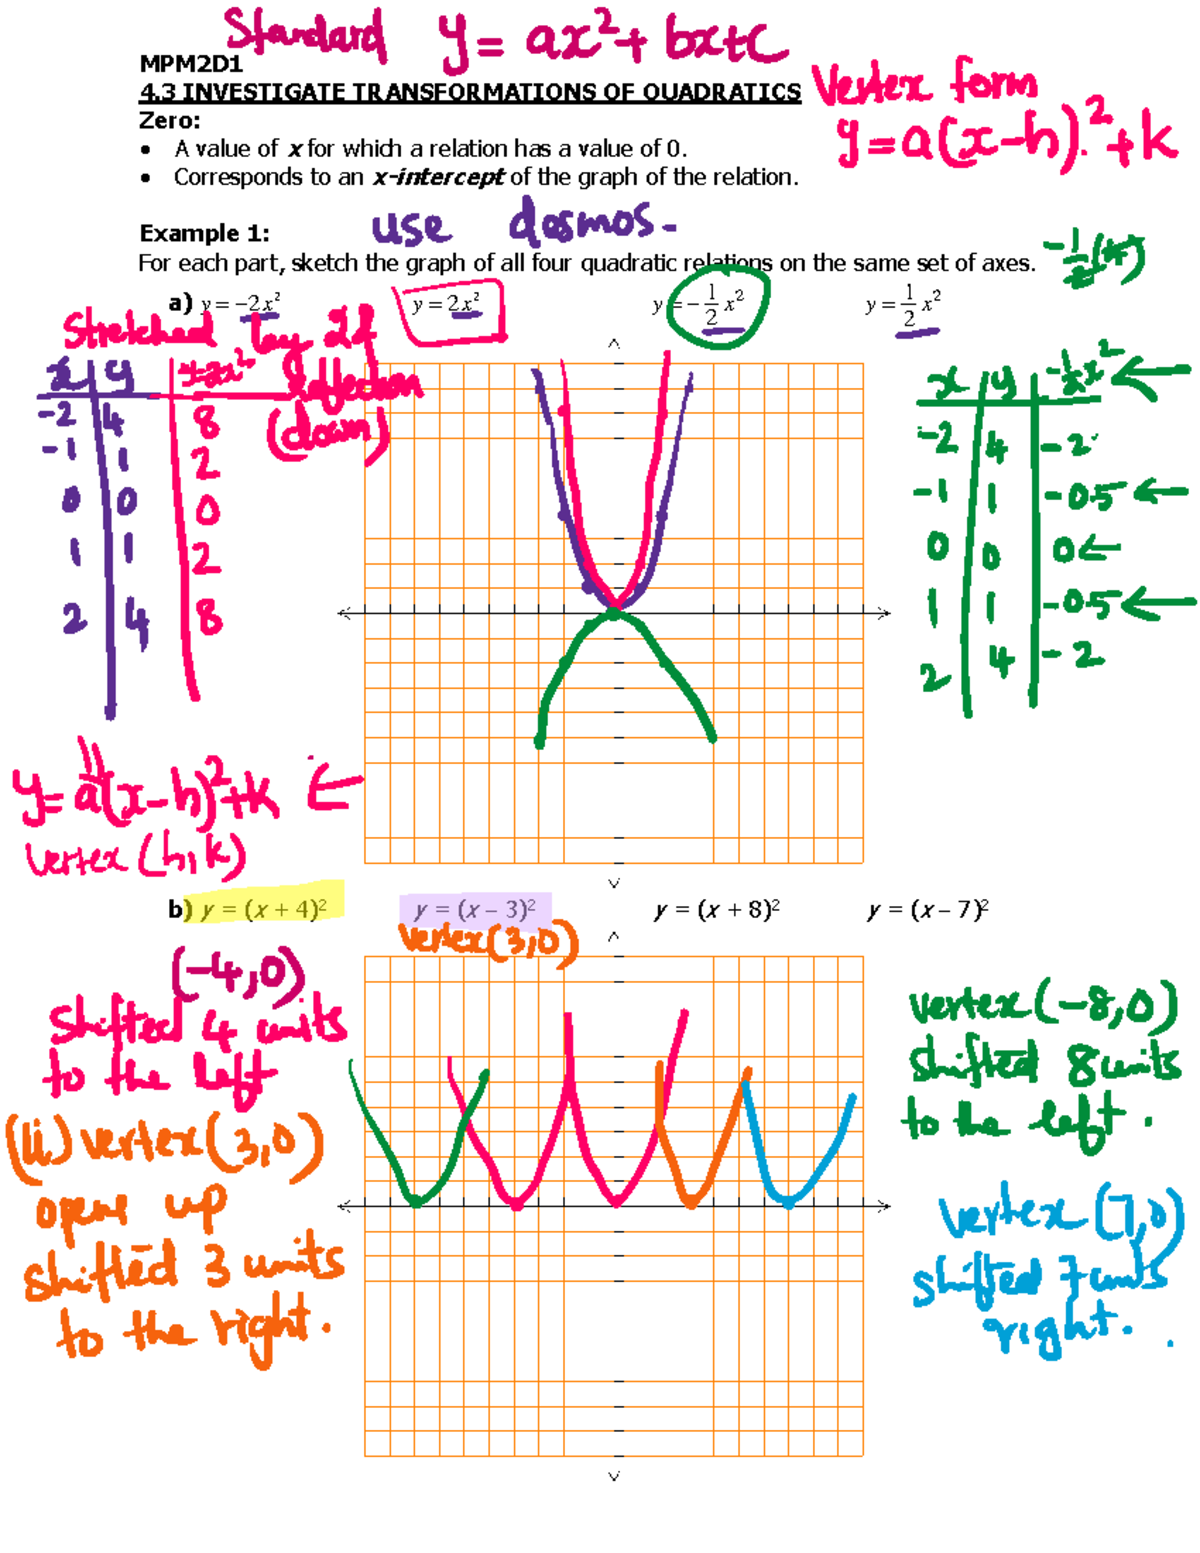 Standard y = ax²+ bx+c
MPM2D1
4.3 INVESTIGATE TRANSFORMATIONS OF QUADRATICS
Vertex form
y=a(x-h)²+k
Zero:
• A value of x for which a relation has a value of 0.
• Corresponds to an x-intercept of the graph of the relation.
use dosmos.
Example 1:
For each part, sketch the graph of all four quadratic relations on the same set of axes.
-1/2(4)
a) y = -2x² y = 2x² y = -1/2 x² y = 1/2 x²
Stretched by 2
Reflection
(down)
x y
-2 4 8
-1 1 2
0 0 0
1 1 2
2 4 8
x y -1/2x²
-2 4 -2
-1 1 -0.5
0 0 0
1 1 -0.5
2 4 -2
y=a(x-h)²+k
vertex (h,k)
b) y = (x + 4)² y = (x – 3)² y = (x + 8)² y = (x – 7)²
vertex(3,0)
(-4,0)
shifted 4 units
to the left
(ii) vertex(3,0)
up
shifted 3 units
to the right.
vertex(-8,0)
shifted 8 units
to the left.
vertex (7,0)
shifted 7 units
right.